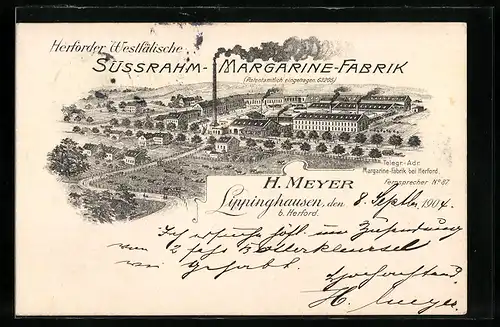 Herforder Westfälische
SÜSSRAHM-MARGARINE-FABRIK
(Patentamtlich eingetragen 63205)
Telegr.-Adr.
Margarine-Fabrik bei Herford.
Fernsprecher No 87
H. MEYER
Lippinghausen, den 8. Septbr. 1904.
b. Herford.
Ich um Zusendung
von 2
wie gehabt.
Hochachtend
H. Meyer